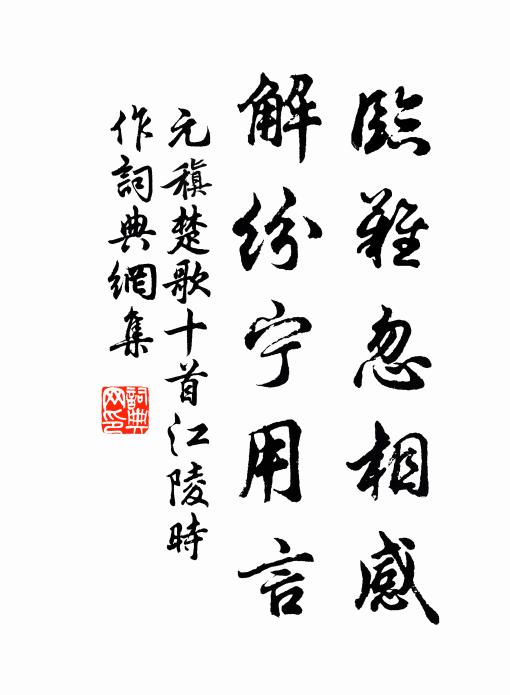 臨難忽相感
解紛宁用言
元稹楚歌十首江陵時
作詞典網集
詞典网印